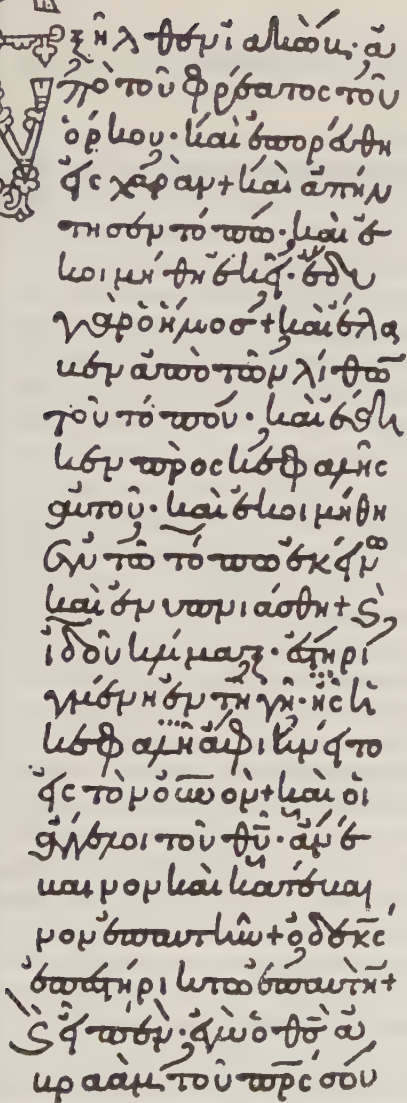 ξῆλθεν ἰακὼβ· ἀ
πὸ τοῦ φρέατος τοῦ
ὅρκου· καὶ ἐπορεύθη
εἰς χάραν+ καὶ ἀπήν
τησεν τόπω· καὶ ἐ
κοιμήθη ἐκεῖ· ἔδυ
γὰρ ὁ ἥλιος+ καὶ ἔλα
βεν ἀπὸ τῶν λίθω
τοῦ τόπου· καὶ ἔθη
κεν πρὸς κεφαλῆς
αὐτοῦ· καὶ ἐκοιμήθη
ἐν τῶ τόπω ἐκείνω
καὶ ἐνυπνιάσθη+ κ
ἰδοὺ κλίμαξ· ἐστηρι
γμένη ἐν τῆ γῆ· ἧς ἡ
κεφαλὴ ἀφικνεῖτο
εἰς τὸν οὐνον+ καὶ οἱ
ἄγγελοι τοῦ θῦ· ἀνέ
βαινον καὶ κατέβαι
νον ἐπ αὐτήν+ ὁ δὲ κς
ἐπεστήρικτο ἐπ αὐτῆ+
κ εἶπεν· ἐγὼ ὁ θς ἀ
βραὰμ τοῦ πρς σου